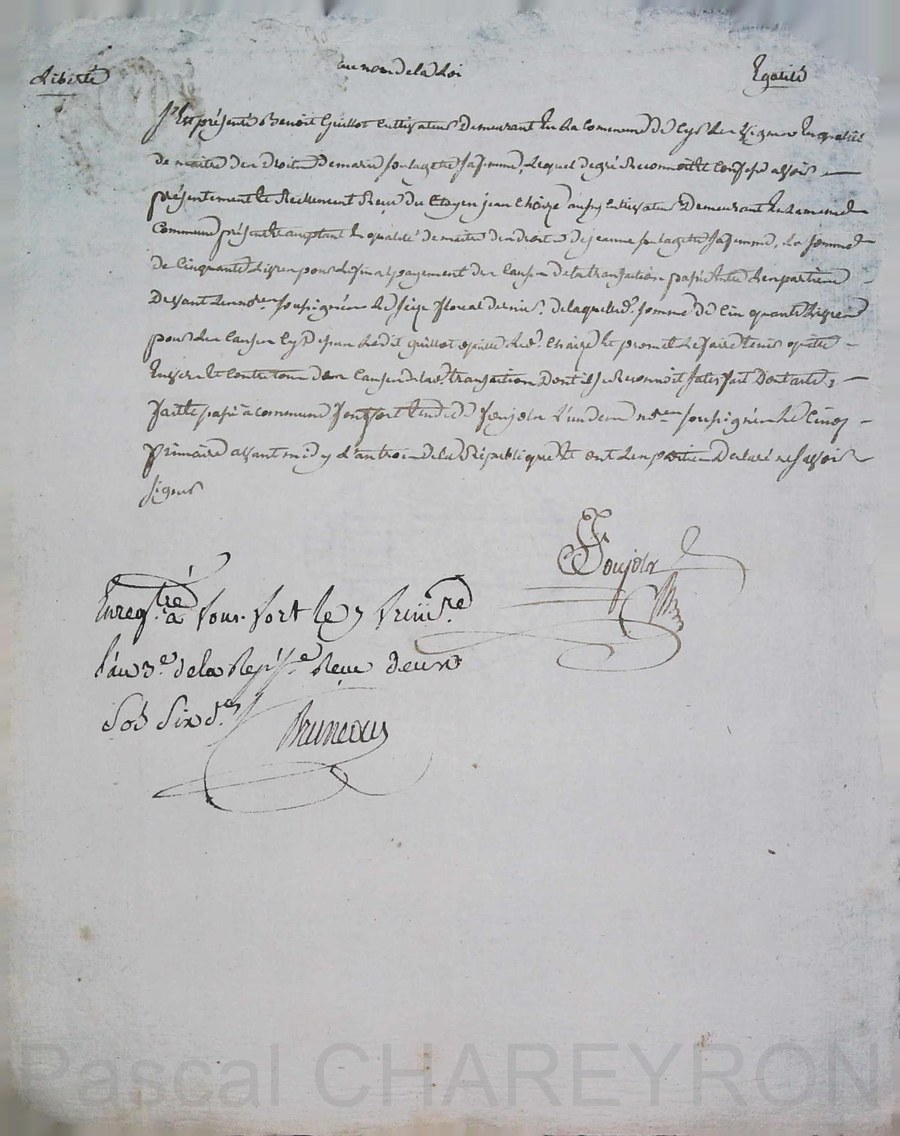 Liberté au nom de la Loi Egalité
S'est présenté Benoit Guillot cultivateur demeurant en la commune de en qualité
de maitre des droits de marie sa femme, Lequel de gré Reconnoit et Confesse avoir
présentement et Reellement Reçu du Citoyen jean aussy cultivateur demeurant en la meme
Commune présent acceptant en qualité de maitre des droits de jeanne sa femme, La somme
de Cinquante Livres pour le final payement des Causes de la transaction passée entre les parties
devant le no.re soussigné le seize floreal dernier de laquelle d. somme de Cinquante Livres
pour les Causes Cy dessus Le dit Guillot quitte le d. et promet le faire tenir quitte
Envers et Contre tous des Causes de la d. transaction dont il se Reconnoit satisfait dont acte,
faite passé à commune l'un des no.res soussigné le Cinq
frimaire avant midy l'an trois de la République et ont les parties declaré ne savoir
signer
Foujols
Enreg.tré à le 7 frim.re
l'an 3.e de la Rep.que Reçu deux
Sols Six d.ers
Bruneaus
Pascal CHAREYRON